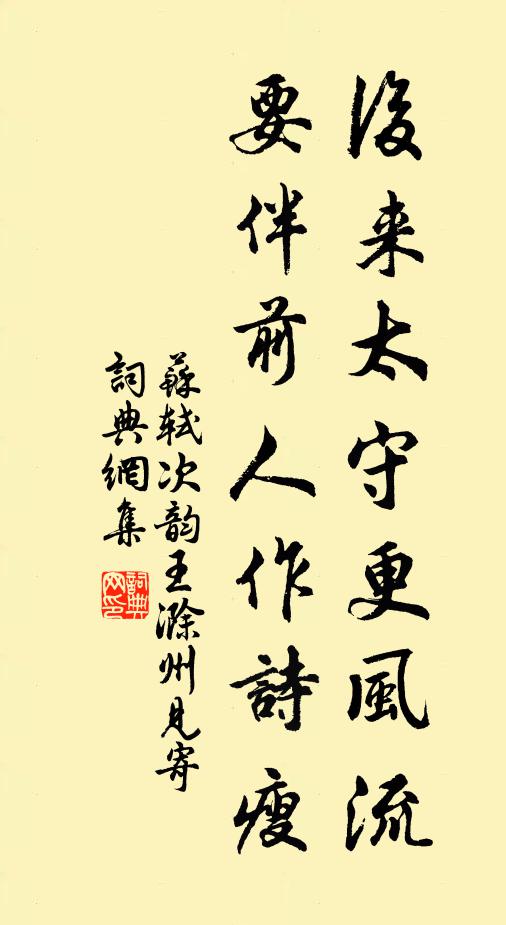 後来太守更風流
要伴前人作詩瘦
蘇軾次韵王滁州見寄
詞典網集
詞典网印